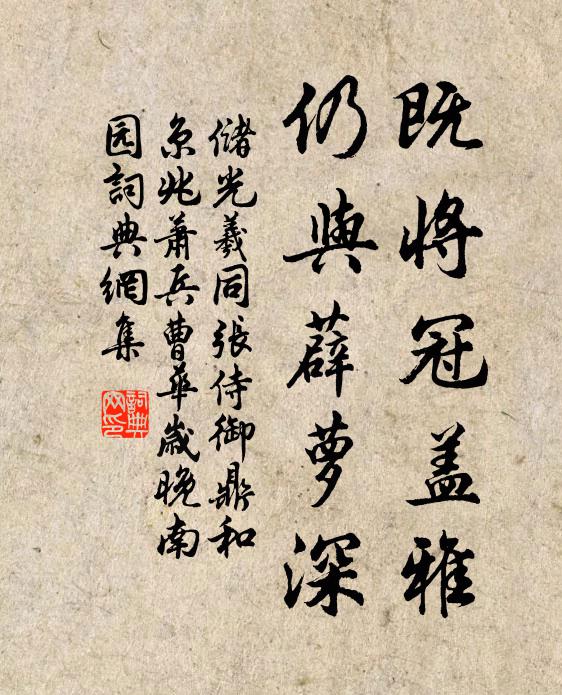 既将冠盖雅
仍與薜萝深
儲光羲同張侍御鼎和
京兆萧兵曹華歲晚南
园詞典網集
詞典
网印